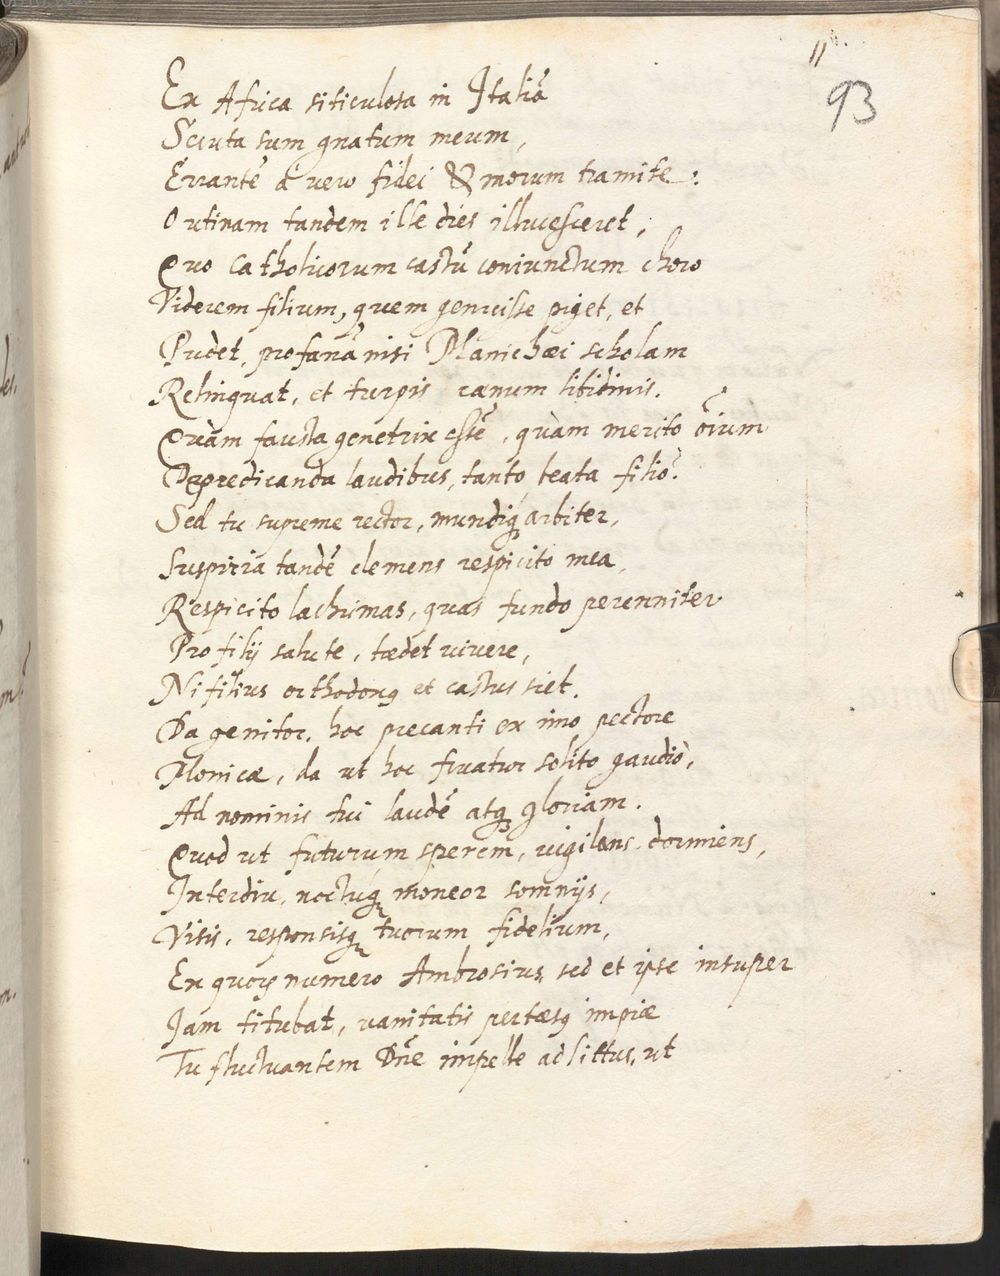 11
93
Ex Africa siticulosa in Italiā
Secuta sum gnatum meum,
Errantē à vero fidei & morum tramite:
O utinam tandem ille dies illucesceret,
Quo Catholicorum castū coniunctum choro
Viderem filium, quem genuisse piget, et
Pudet, profanā nisi Manichæi scholam
Relinquat, et turpis cænum libidinis.
Quàm fausta genetrix essē, quàm merito oīum
Deprædicanda laudibus, tanto beata filio?
Sed tu supreme rector, mundiq; arbiter,
Suspiria tandē clemens respicito mea,
Respicito lachrimas, quas fundo perenniter
Pro filij salute, tædet vivere,
Ni filius orthodoxq et castus siet.
Da genitor, hoc precanti ex imo pectore
Monicæ, da ut hoc fruatur solito gaudio,
Ad nominis tui laudē atq; gloriam.
Quod ut futurum sperem, vigilans, dormiens,
Interdiu, noctúq; moneor somnijs,
Visis, responsisq; tuorum fidelium,
Ex quoꝝ numero Ambrosius, sed et ipse insuper
Jam titubat, vanitatis pertæsq impiæ
Tu fluctuantem Dn̄e impelle ad littus, ut